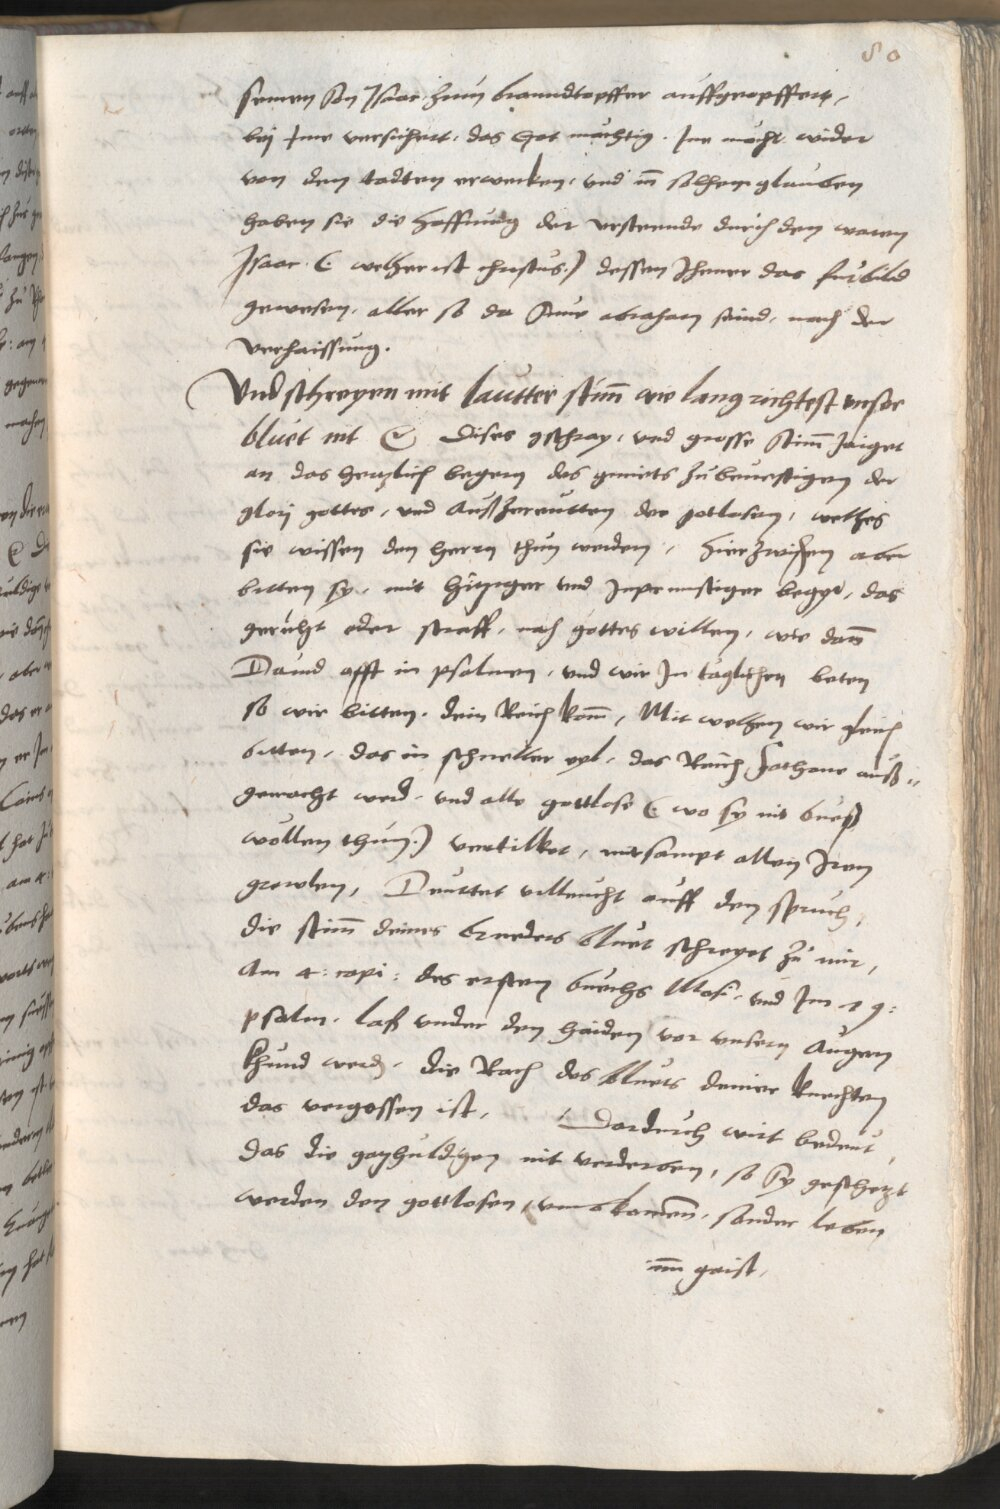 80
seinen Son Isaac zum brandtopffer auffgeopffert,
bei Ime versichert, das Got mächtig. Ine möcht wider
von dem todten erwecken, und inn solhem glauben
haben sie die Hoffnung der ersteende durch den waren
Isaac (: welher ist christus:) dessen Ihener das furbild
gewesen, aller so da Süne abraham seind, nach der
verhaissung.
Und schreyen mit lautter stimm wie lang richtest unser
bluet nit &c Dises gschray, und grosse stimm zaiget
an das hertzlich begern des gmiets zu bevestigen der
glorj gottes, und Außzereutten der gotlosen, welhes
sie wissen den Herrn thun werden, hierzwischen aber
bitten sy, mit hitziger und Inprunstiger begyr, das
gericht oder straff, nach gottes willen, wie dann
David offt in psalmen, und wir In täglichen beten
so wir bitten, dein Reich komm, Mit welhem wir gleich
bitten, das in schneller eyl, das Reich Sathane auß
gemacht werd, und alle gottlose (: wo sy nit bueß
wöllen thun:) vertilket, mitsampt allen Iren
grewlen, Deuttet villeucht auff den spruch,
die stimm deines brueders bluet schreyet zu mir,
Am 4: capi: des ersten buechs Mosi, und Im 79:
psalm, laß under den haiden vor unsern Augen
khund werden, die Rach des bluets deiner knechten
das vergossen ist, Dardurch wirt bedeut,
das die gottseligen nit verderben, so sy geschetzt
werden den gottlosen, umbkomen, sonder leben
imm gaist,